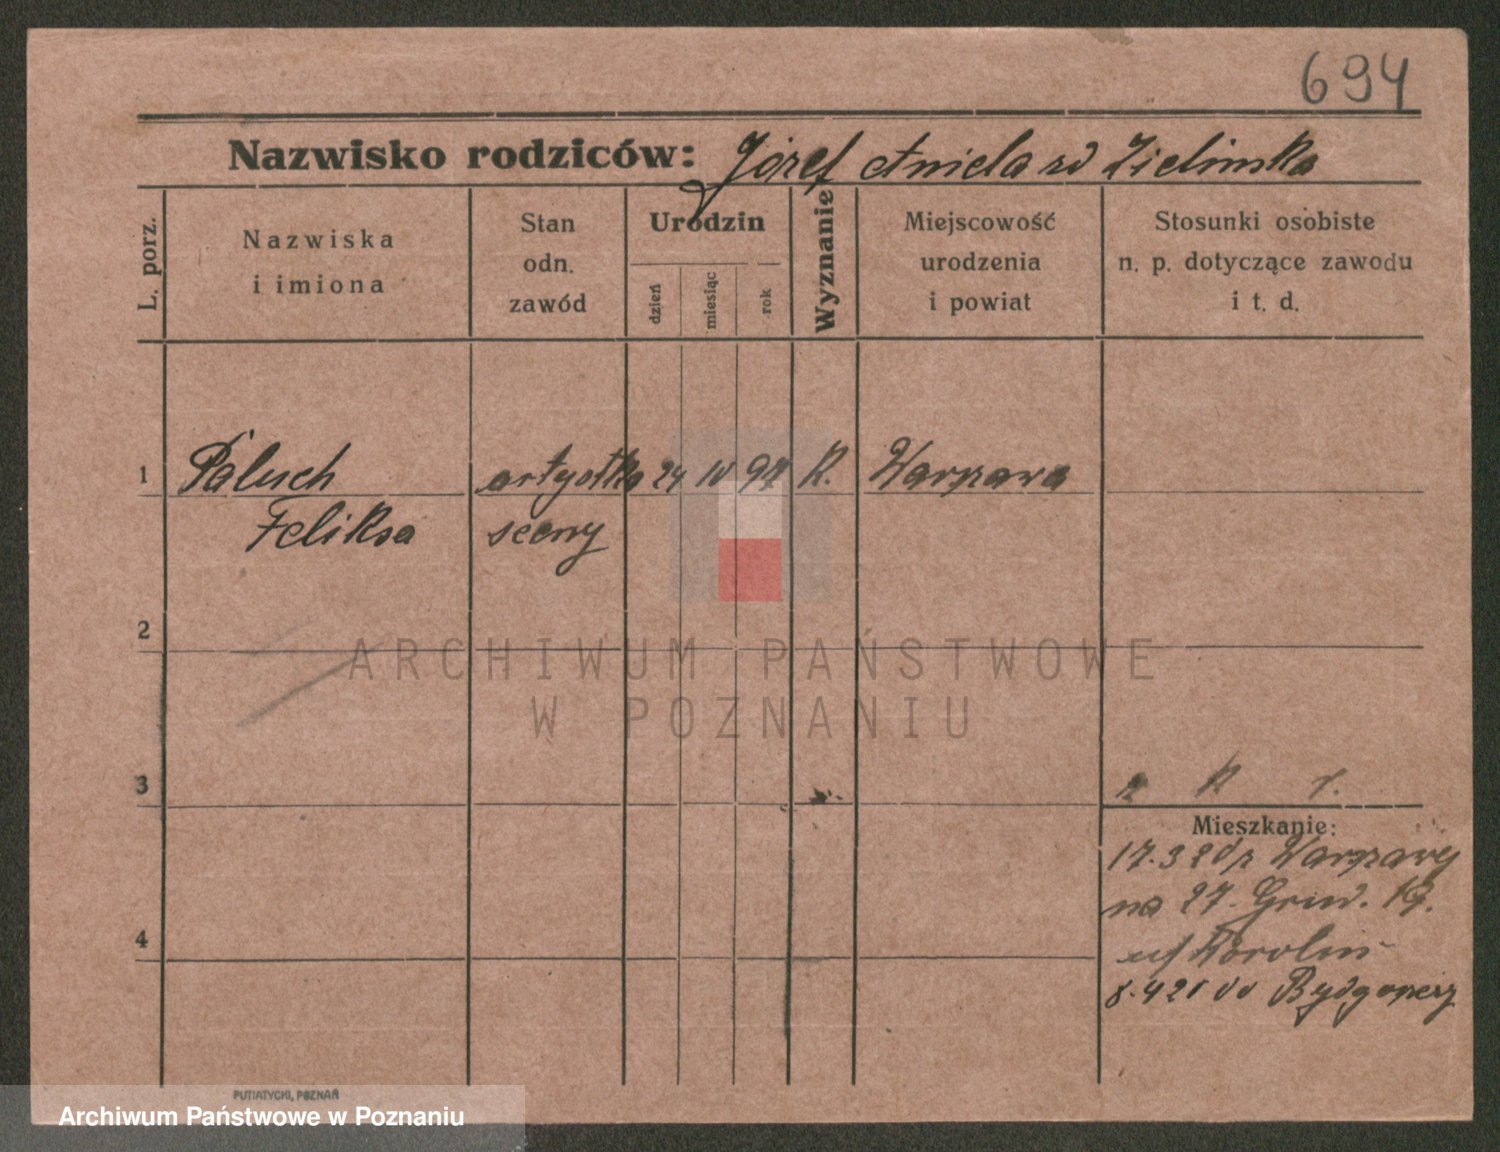 694
Nazwisko rodziców: Józef Aniela zd Zielinska
L. porz.
Nazwiska i imiona
Stan odn. zawód
Urodzin
dzień
miesiąc
rok
Wyznanie
Miejscowość urodzenia i powiat
Stosunki osobiste n. p. dotyczące zawodu i t. d.
1 Paluch artystka 24 IV R. Warszawa
Feliksa sceny
2
ARCHIWUM PAŃSTWOWE
W POZNANIU
3
Mieszkanie:
17.3 Warszawy
na 27. Grud. 19.
4
Karolin
8.4 do Bydgoszczy
PUTIATYCKI, POZNAŃ
Archiwum Państwowe w Poznaniu